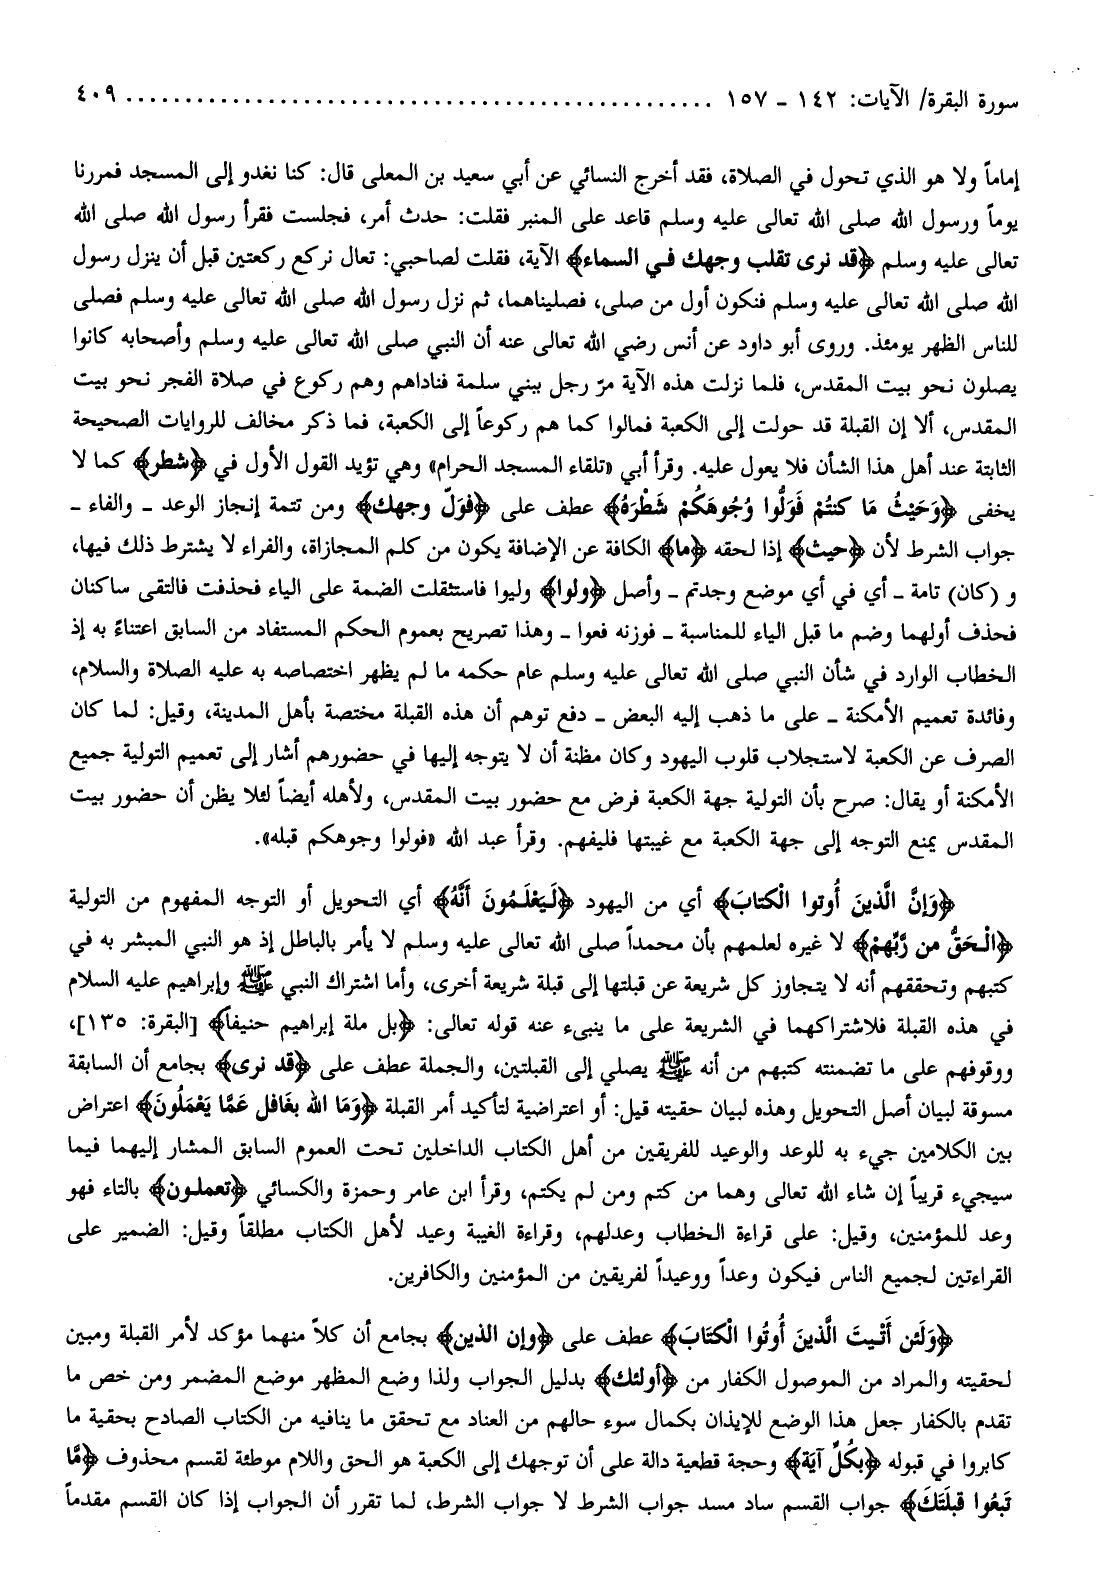 سورة البقرة/ الآيات: ١٤٢ ـ ١٥٧ ................................................ ٤٠٩
إماماً ولا هو الذي تحول في الصلاة، فقد أخرج النسائي عن أبي سعيد بن المعلى قال: كنا نغدو إلى المسجد فمررنا
يوماً ورسول الله صلى الله تعالى عليه وسلم قاعد على المنبر فقلت: حدث أمر، فجلست فقرأ رسول الله صلى الله
تعالى عليه وسلم ﴿قد نرى تقلب وجهك في السماء﴾ الآية، فقلت لصاحبي: تعال نركع ركعتين قبل أن ينزل رسول
الله صلى الله تعالى عليه وسلم فنكون أول من صلى، فصليناهما، ثم نزل رسول الله صلى الله تعالى عليه وسلم فصلى
للناس الظهر يومئذ. وروى أبو داود عن أنس رضي الله تعالى عنه أن النبي صلى الله تعالى عليه وسلم وأصحابه كانوا
يصلون نحو بيت المقدس، فلما نزلت هذه الآية مرّ رجل ببني سلمة فناداهم وهم ركوع في صلاة الفجر نحو بيت
المقدس، ألا إن القبلة قد حولت إلى الكعبة فمالوا كما هم ركوعاً إلى الكعبة، فما ذكر مخالف للروايات الصحيحة
الثابتة عند أهل هذا الشأن فلا يعول عليه. وقرأ أبي «تلقاء المسجد الحرام» وهي تؤيد القول الأول في ﴿شطر﴾ كما لا
يخفى ﴿وَحَيْثُ مَا كنتُمْ فَوَلُّوا وُجُوهَكُمْ شَطْرَهُ﴾ عطف على ﴿فولّ وجهك﴾ ومن تتمة إنجاز الوعد ـ والفاء ـ
جواب الشرط لأن ﴿حيث﴾ إذا لحقه ﴿ما﴾ الكافة عن الإضافة يكون من كلم المجازاة، والفراء لا يشترط ذلك فيها،
و (كان) تامة ـ أي في أي موضع وجدتم ـ وأصل ﴿ولوا﴾ وليوا فاستثقلت الضمة على الياء فحذفت فالتقى ساكنان
فحذف أولهما وضم ما قبل الياء للمناسبة ـ فوزنه فعوا ـ وهذا تصريح بعموم الحكم المستفاد من السابق اعتناءً به إذ
الخطاب الوارد في شأن النبي صلى الله تعالى عليه وسلم عام حكمه ما لم يظهر اختصاصه به عليه الصلاة والسلام،
وفائدة تعميم الأمكنة ـ على ما ذهب إليه البعض ـ دفع توهم أن هذه القبلة مختصة بأهل المدينة، وقيل: لما كان
الصرف عن الكعبة لاستجلاب قلوب اليهود وكان مظنة أن لا يتوجه إليها في حضورهم أشار إلى تعميم التولية جميع
الأمكنة أو يقال: صرح بأن التولية جهة الكعبة فرض مع حضور بيت المقدس، ولأهله أيضاً لئلا يظن أن حضور بيت
المقدس يمنع التوجه إلى جهة الكعبة مع غيبتها فليفهم. وقرأ عبد الله «فولوا وجوهكم قبله».
﴿وَإِنَّ الَّذينَ أُوتوا الْكتابَ﴾ أي من اليهود ﴿لَيَعْلَمُونَ أَنَّهُ﴾ أي التحويل أو التوجه المفهوم من التولية
﴿الْحَقُّ من رَّبِّهمْ﴾ لا غيره لعلمهم بأن محمداً صلى الله تعالى عليه وسلم لا يأمر بالباطل إذ هو النبي المبشر به في
كتبهم وتحققهم أنه لا يتجاوز كل شريعة عن قبلتها إلى قبلة شريعة أخرى، وأما اشتراك النبي ﷺ وإبراهيم عليه السلام
في هذه القبلة فلاشتراكهما في الشريعة على ما ينبىء عنه قوله تعالى: ﴿بل ملة إبراهيم حنيفا﴾ [البقرة: ١٣٥]،
ووقوفهم على ما تضمنته كتبهم من أنه ﷺ يصلي إلى القبلتين، والجملة عطف على ﴿قد نرى﴾ بجامع أن السابقة
مسوقة لبيان أصل التحويل وهذه لبيان حقيته قيل: أو اعتراضية لتأكيد أمر القبلة ﴿وَمَا الله بغَافل عَمَّا يَعْمَلُونَ﴾ اعتراض
بين الكلامين جيء به للوعد والوعيد للفريقين من أهل الكتاب الداخلين تحت العموم السابق المشار إليهما فيما
سيجيء قريباً إن شاء الله تعالى وهما من كتم ومن لم يكتم، وقرأ ابن عامر وحمزة والكسائي ﴿تعملون﴾ بالتاء فهو
وعد للمؤمنين، وقيل: على قراءة الخطاب وعدلهم، وقراءة الغيبة وعيد لأهل الكتاب مطلقاً وقيل: الضمير على
القراءتين لجميع الناس فيكون وعداً ووعيداً لفريقين من المؤمنين والكافرين.
﴿وَلَئن أَتْيتَ الَّذينَ أُوتُوا الْكتَابَ﴾ عطف على ﴿وإن الذين﴾ بجامع أن كلاً منهما مؤكد لأمر القبلة ومبين
لحقيته والمراد من الموصول الكفار من ﴿أولئك﴾ بدليل الجواب ولذا وضع المظهر موضع المضمر ومن خص ما
تقدم بالكفار جعل هذا الوضع للإيذان بكمال سوء حالهم من العناد مع تحقق ما ينافيه من الكتاب الصادح بحقية ما
كابروا في قبوله ﴿بكُلِّ آيَة﴾ وحجة قطعية دالة على أن توجهك إلى الكعبة هو الحق واللام موطئة لقسم محذوف ﴿مَّا
تَبعُوا قبلَتَكَ﴾ جواب القسم ساد مسد جواب الشرط لا جواب الشرط، لما تقرر أن الجواب إذا كان القسم مقدماً